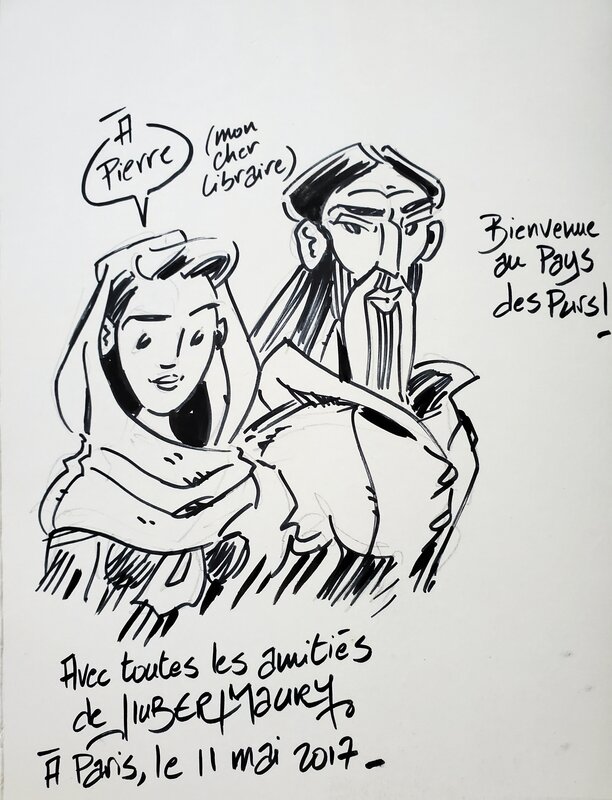 À
Pierre
(mon
cher
libraire)
Bienvenue
au Pays
des Purs!
Avec toutes les amitiés
de HUBERT MAURY
À Paris, le 11 mai 2017_